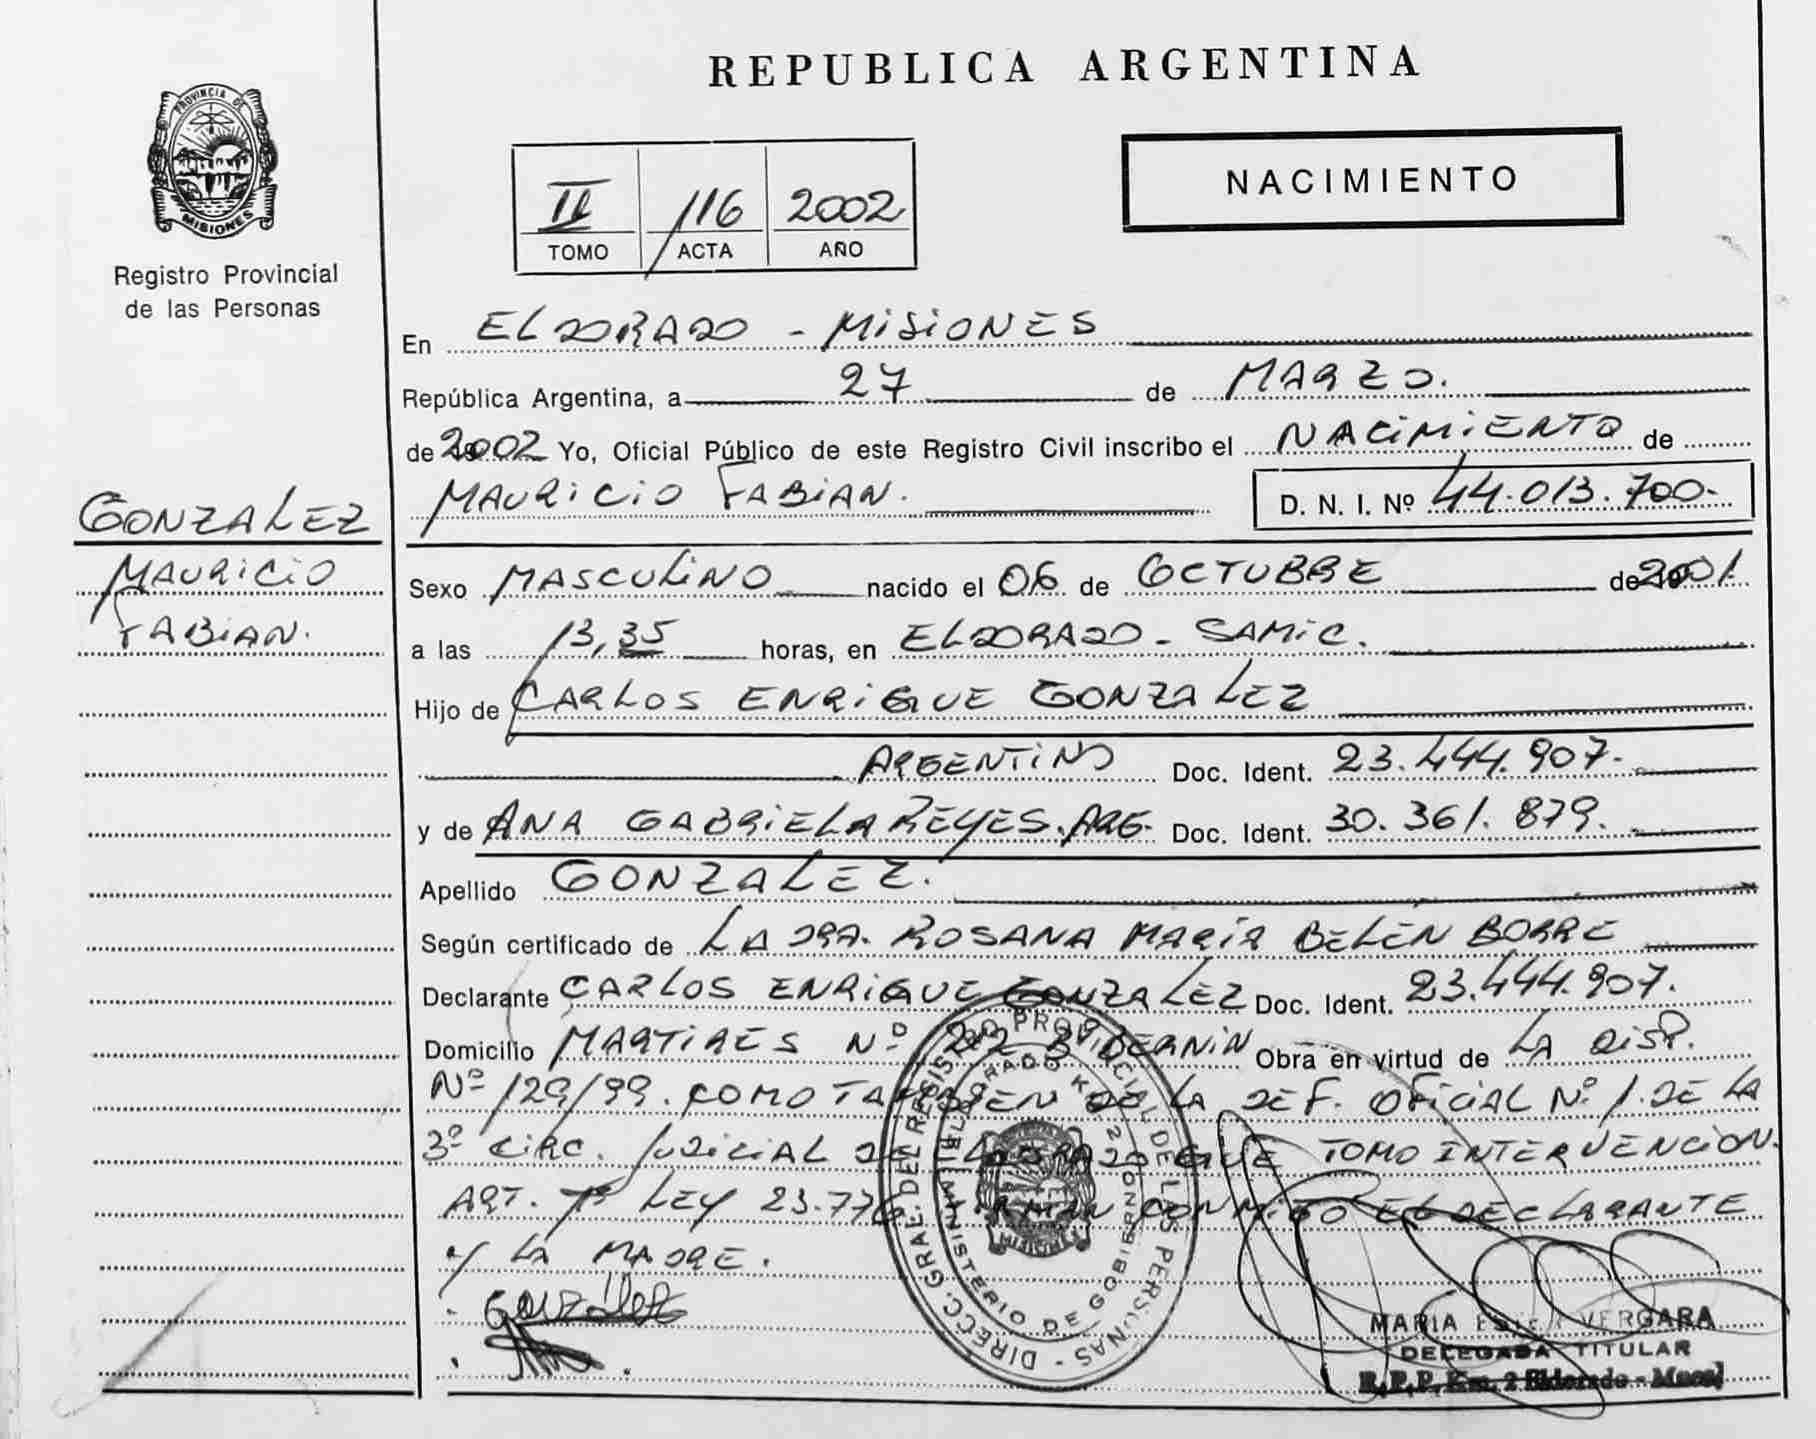 REPUBLICA ARGENTINA
PROVINCIA DE
MISIONES
Registro Provincial
de las Personas
II 116 2002
TOMO ACTA AÑO
NACIMIENTO
En ELDORADO - MISIONES
República Argentina, a 27 de MARZO.
de 2002 Yo, Oficial Público de este Registro Civil inscribo el NACIMIENTO de
MAURICIO FABIAN. D. N. I. Nº 44.013.700-
GONZALEZ
MAURICIO
FABIAN.
Sexo MASCULINO nacido el 06 de OCTUBRE de 2001.
a las 13,35 horas, en ELDORADO - SAMIC.
Hijo de CARLOS ENRIQUE GONZALEZ
ARGENTINO Doc. Ident. 23.444.907.-
y de ANA GABRIELA REYES. ARG. Doc. Ident. 30.361.879.
Apellido GONZALEZ.
Según certificado de LA DRA. ROSANA MARÍA BELÉN BORRE
Declarante CARLOS ENRIQUE GONZALEZ Doc. Ident. 23.444.907.
Domicilio MARTIRES Nº 212 Bº Obra en virtud de LA DISP.
Nº 129/99. COMO TAMBIEN DE LA DEF. OFICIAL Nº 1. DE LA
3º CIRC. JUDICIAL DE ELDORADO QUE TOMO INTERVENCION.
ART. 7º LEY 23.776 FIRMAN CONMIGO EL DECLARANTE
Y LA MADRE.
Gonzalez
DIREC. GRAL. DEL REGISTRO PROVINCIAL DE LAS PERSONAS -
MINISTERIO DE GOBIERNO
ELDORADO KM 2
MISIONES
MARIA ESTER VERGARA
DELEGADA TITULAR
R.P.P. Km. 2 Eldorado - Mnes